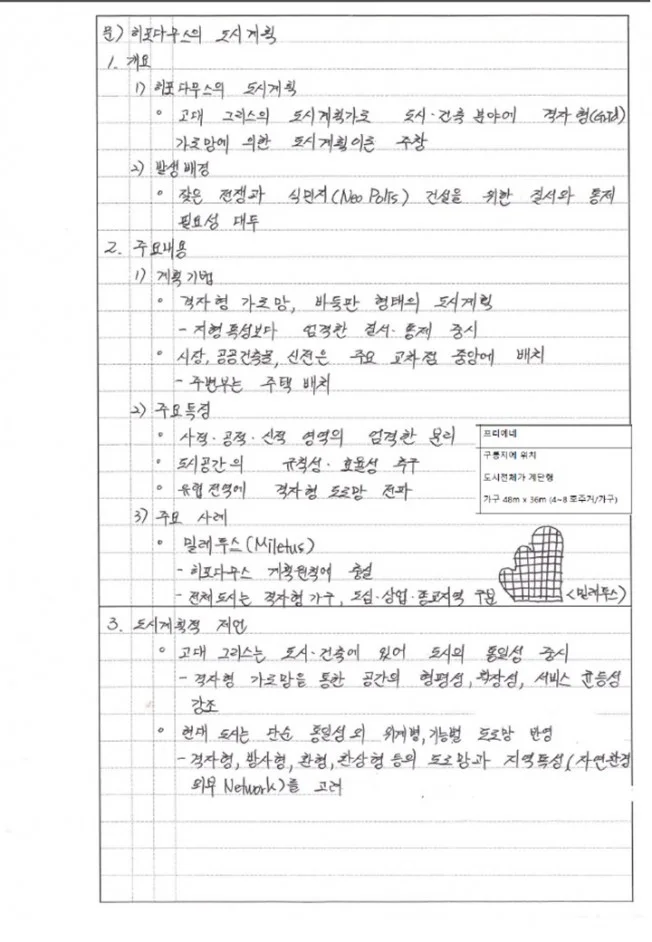 문) 히포다무스의 도시계획
1. 개요
1) 히포다무스의 도시계획
◦ 고대 그리스의 도시계획가로 도시·건축 분야에 격자형(Grid)
가로망에 의한 도시계획이론 주창
2) 발생배경
◦ 잦은 전쟁과 식민지(Neo Polis) 건설을 위한 질서와 통제
필요성 대두
2. 주요내용
1) 계획기법
◦ 격자형 가로망, 바둑판 형태의 도시계획
- 지형특성보다 엄격한 질서·통제 중시
◦ 시장, 공공건축물, 신전은 주요 교차점 중앙에 배치
- 주변부는 주택 배치
2) 주요특징
◦ 사적·공적·신적 영역의 엄격한 분리
◦ 도시공간의 규칙성·효율성 추구
◦ 유럽 전역에 격자형 도로망 전파
프리에네
구릉지에 위치
도시전체가 계단형
가구 48m x 36m (4~8 호주거/가구)
3) 주요 사례
◦ 밀레투스(Miletus)
- 히포다무스 계획원칙에 충실
- 전체도시는 격자형 가구, 도심·상업·종교지역 구분
<밀레투스>
3. 도시계획적 제언
◦ 고대 그리스는 도시·건축에 있어 도시의 통일성 중시
- 격자형 가로망을 통한 공간의 형평성, 확장성, 서비스 균등성
강조
◦ 현대 도시는 단순 통일성 외 위계별, 기능별 도로망 반영
- 격자형, 방사형, 환형, 선상형 등의 도로망과 지역특성(자연환경
의무 Network)를 고려